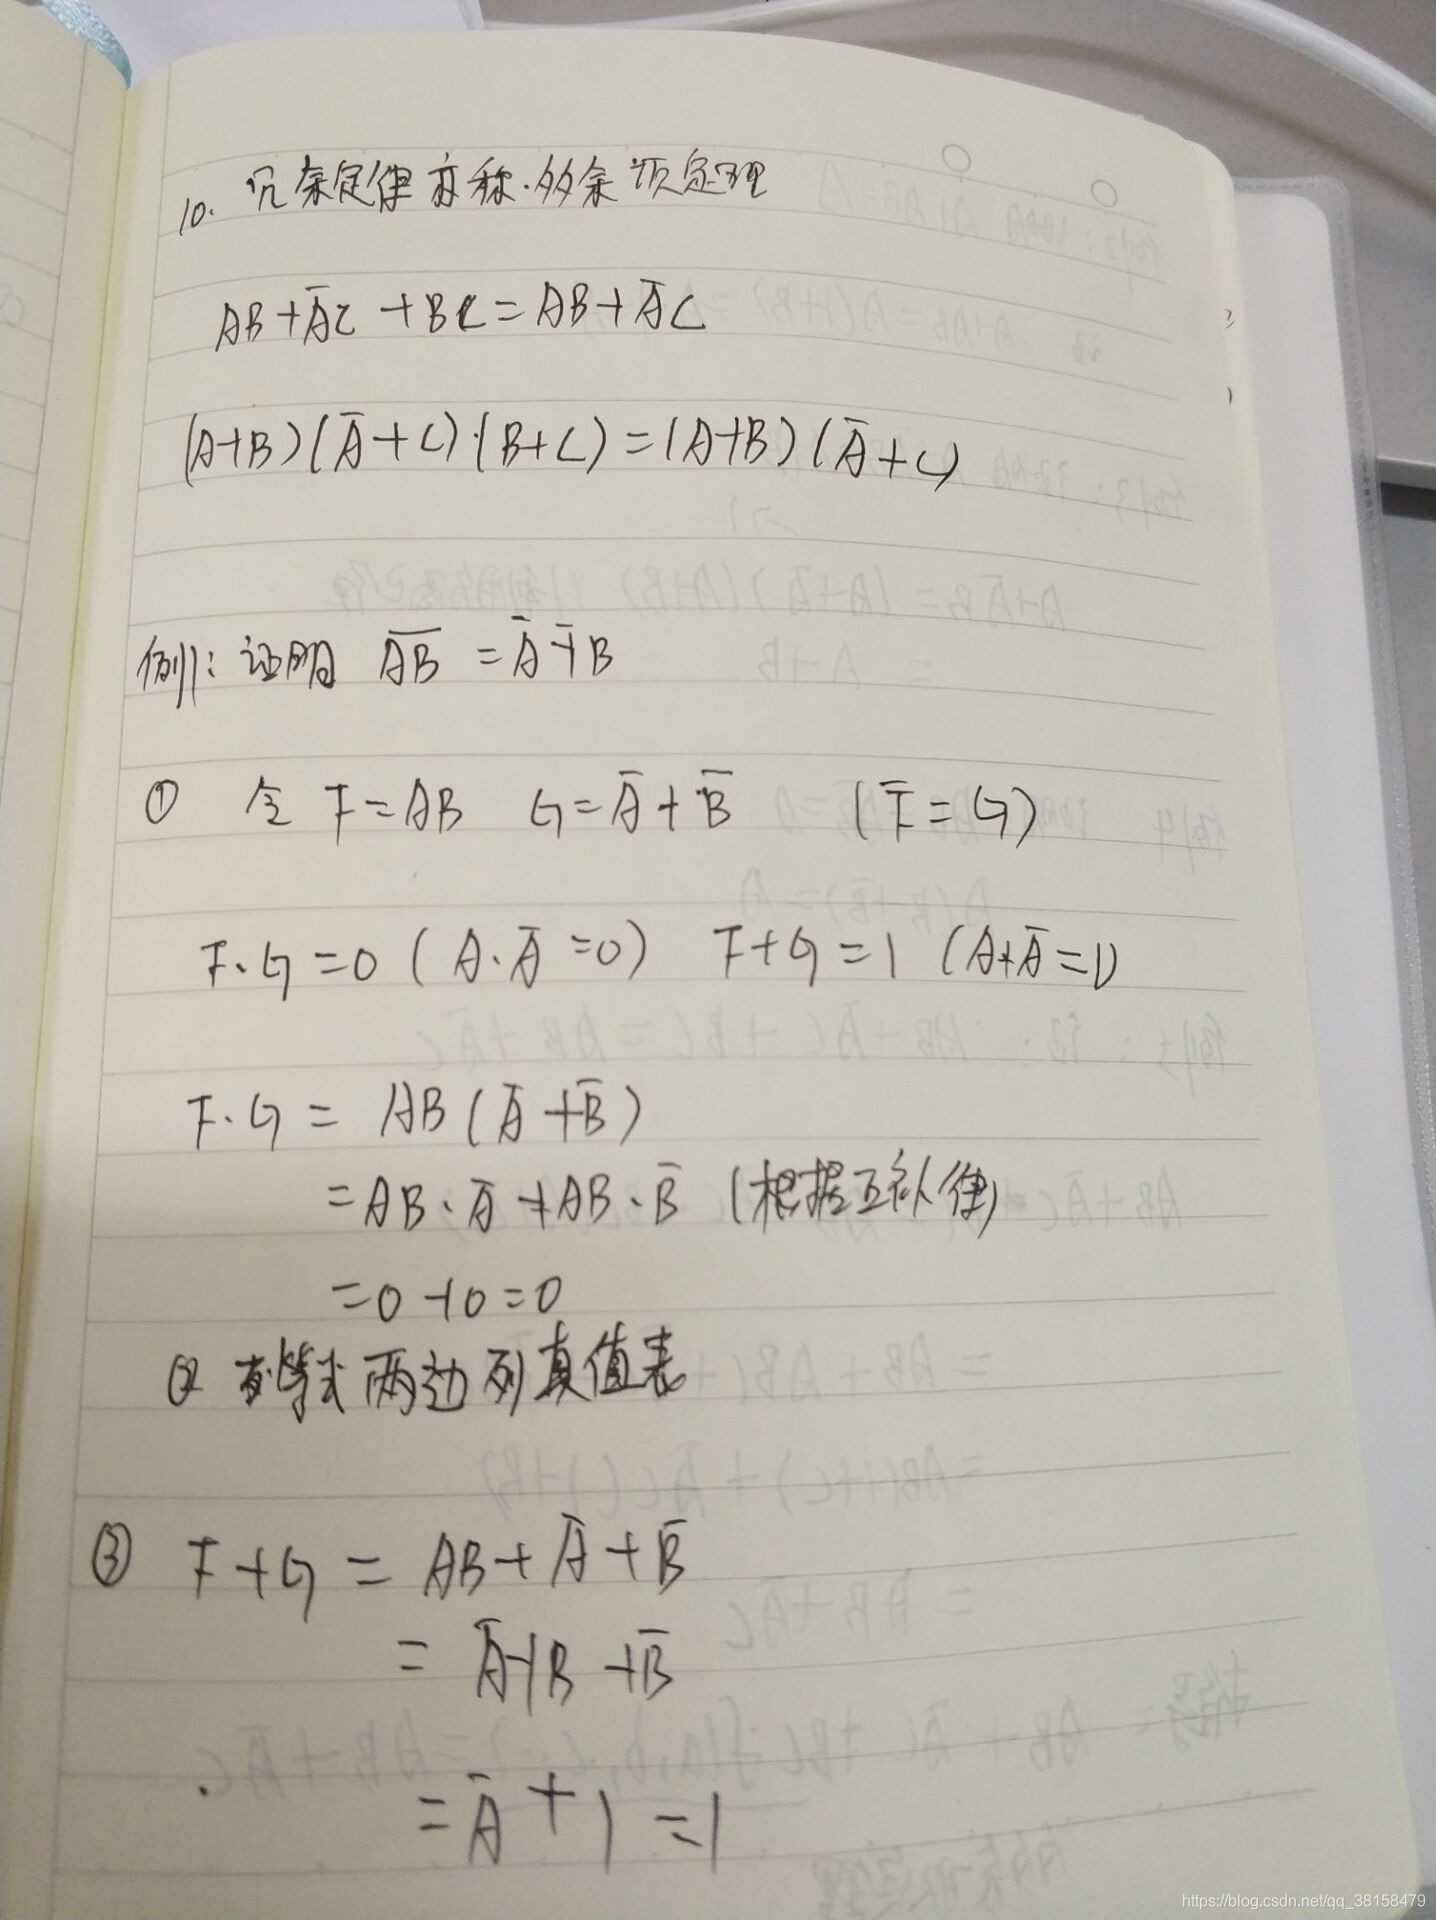 10. 冗余定律亦称.多余项定理
AB+A̅C+BC=AB+A̅C
(A+B)(A̅+C)·(B+C)=(A+B)(A̅+C)
例1:证明 A̅B̅ =A̅+̅B
① 令 F=AB G=A̅+B̅ (F̅=G)
F·G=0 (A·A̅=0) F+G=1 (A+A̅=1)
F·G= AB(A̅+B̅)
=AB·A̅+AB·B̅ (根据互补律)
=0+0=0
② 等式两边列真值表
③ F+G= AB+A̅+B̅
= A̅+B+B̅
=A̅+1=1
https://blog.csdn.net/qq_38158479